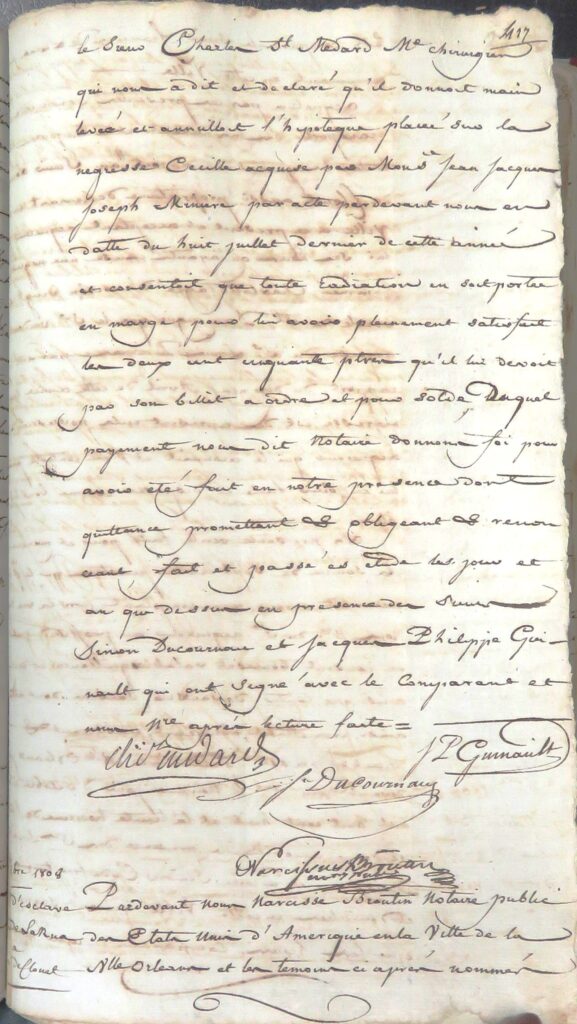 417
le Sieur Charles St Medard Me chirurgien
qui nous a dit et declaré qu'il donnoit main
leveé et annulloit l'hipoteque placeé sur la
negresse Cecille acquise par Mons. Jean Jacques
Joseph par acte pardevant nous en
datte du huit juillet dernier de cette année
et consentoit que toute Radiation en soit portée
en marge pour lui avoir pleinement satisfait
les deux cent cinquante ptres qu'il lui devoit
par son billet a ordre et pour solde Duquel
payement nous dit Notaire donnons foi pour
avoir été fait en notre presence dont
quittance promettant & obligeant & renon
ceant fait et passé és étude les jour et
an que dessus en presence des Sieurs
Simon Ducournau et Jacques Philippe Gui-
nault qui ont signé avec le Comparant et
nous Nre aprés lecture faite =
JP Guinault
Sn Ducournau
Narcissus Broutin
bre 1808
d'Esclave Pardevant Nous Narcisse Broutin Notaire public
des Etats Unis d'Amerique en la Ville de la
a
de Clouet Nlle Orleans et les temoins ci aprés nommés